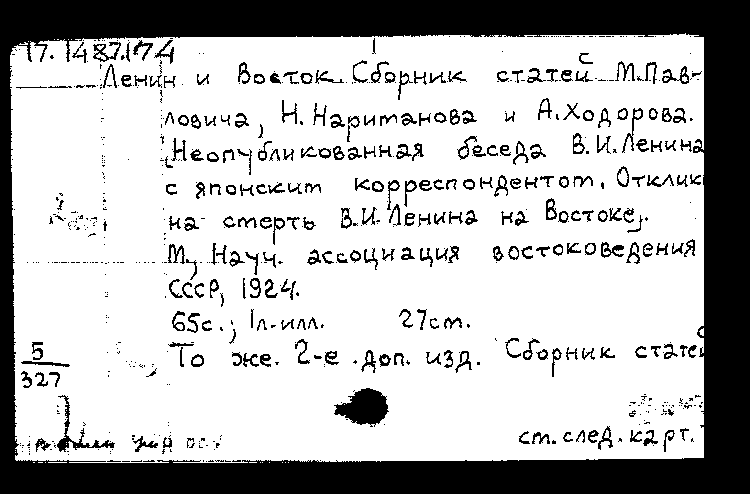 17.1487.174
Ленин и Восток. Сборник статей М.Пав-
ловича, Н. Нариманова и А.Ходорова.
[Неопубликованная беседа В.И.Ленина
с японским корреспондентом. Отклик
на смерть В.И.Ленина на Востоке].
М., Науч. ассоциация востоковедения
СССР, 1924.
65с.; 1л.илл. 27см.
5
То же. 2-е .доп. изд. Сборник статей
327
см.след.карт.